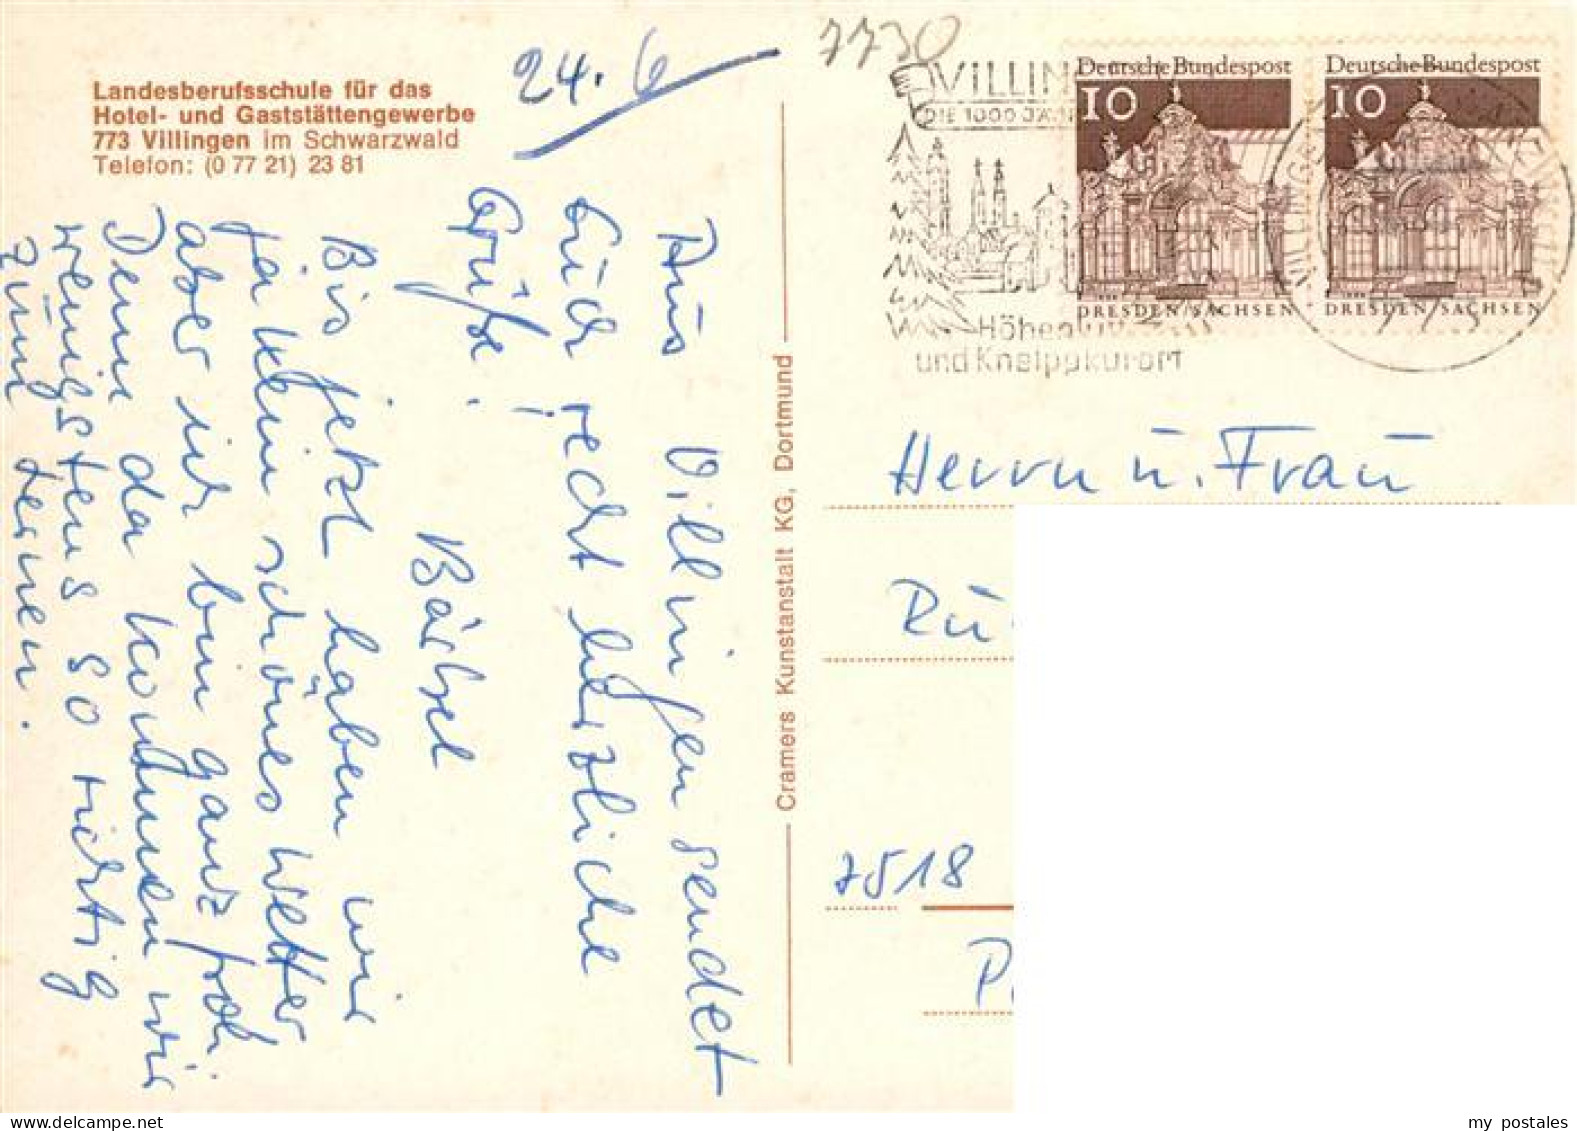 Landesberufsschule für das
Hotel- und Gaststättengewerbe
773 Villingen im Schwarzwald
Telefon: (0 77 21) 23 81
24. 6
Aus Villingen sendet
Euch recht herzliche
Grüße!
Bärbel
Bis jetzt haben wir
ja kein schönes Wetter
aber ich bin ganz froh.
Denn da kommen wir
wenigstens so richtig
zum lernen.
Cramers Kunstanstalt KG, Dortmund
7730
VILLIN
DIE 1000 JÄH
Höhen
und Kneippkurort
Deutsche Bundespost
10
DRESDEN/SACHSEN
Deutsche Bundespost
10
DRESDEN/SACHSEN
VILLINGEN
773
Herrn u. Frau
Rü
7518
my postales